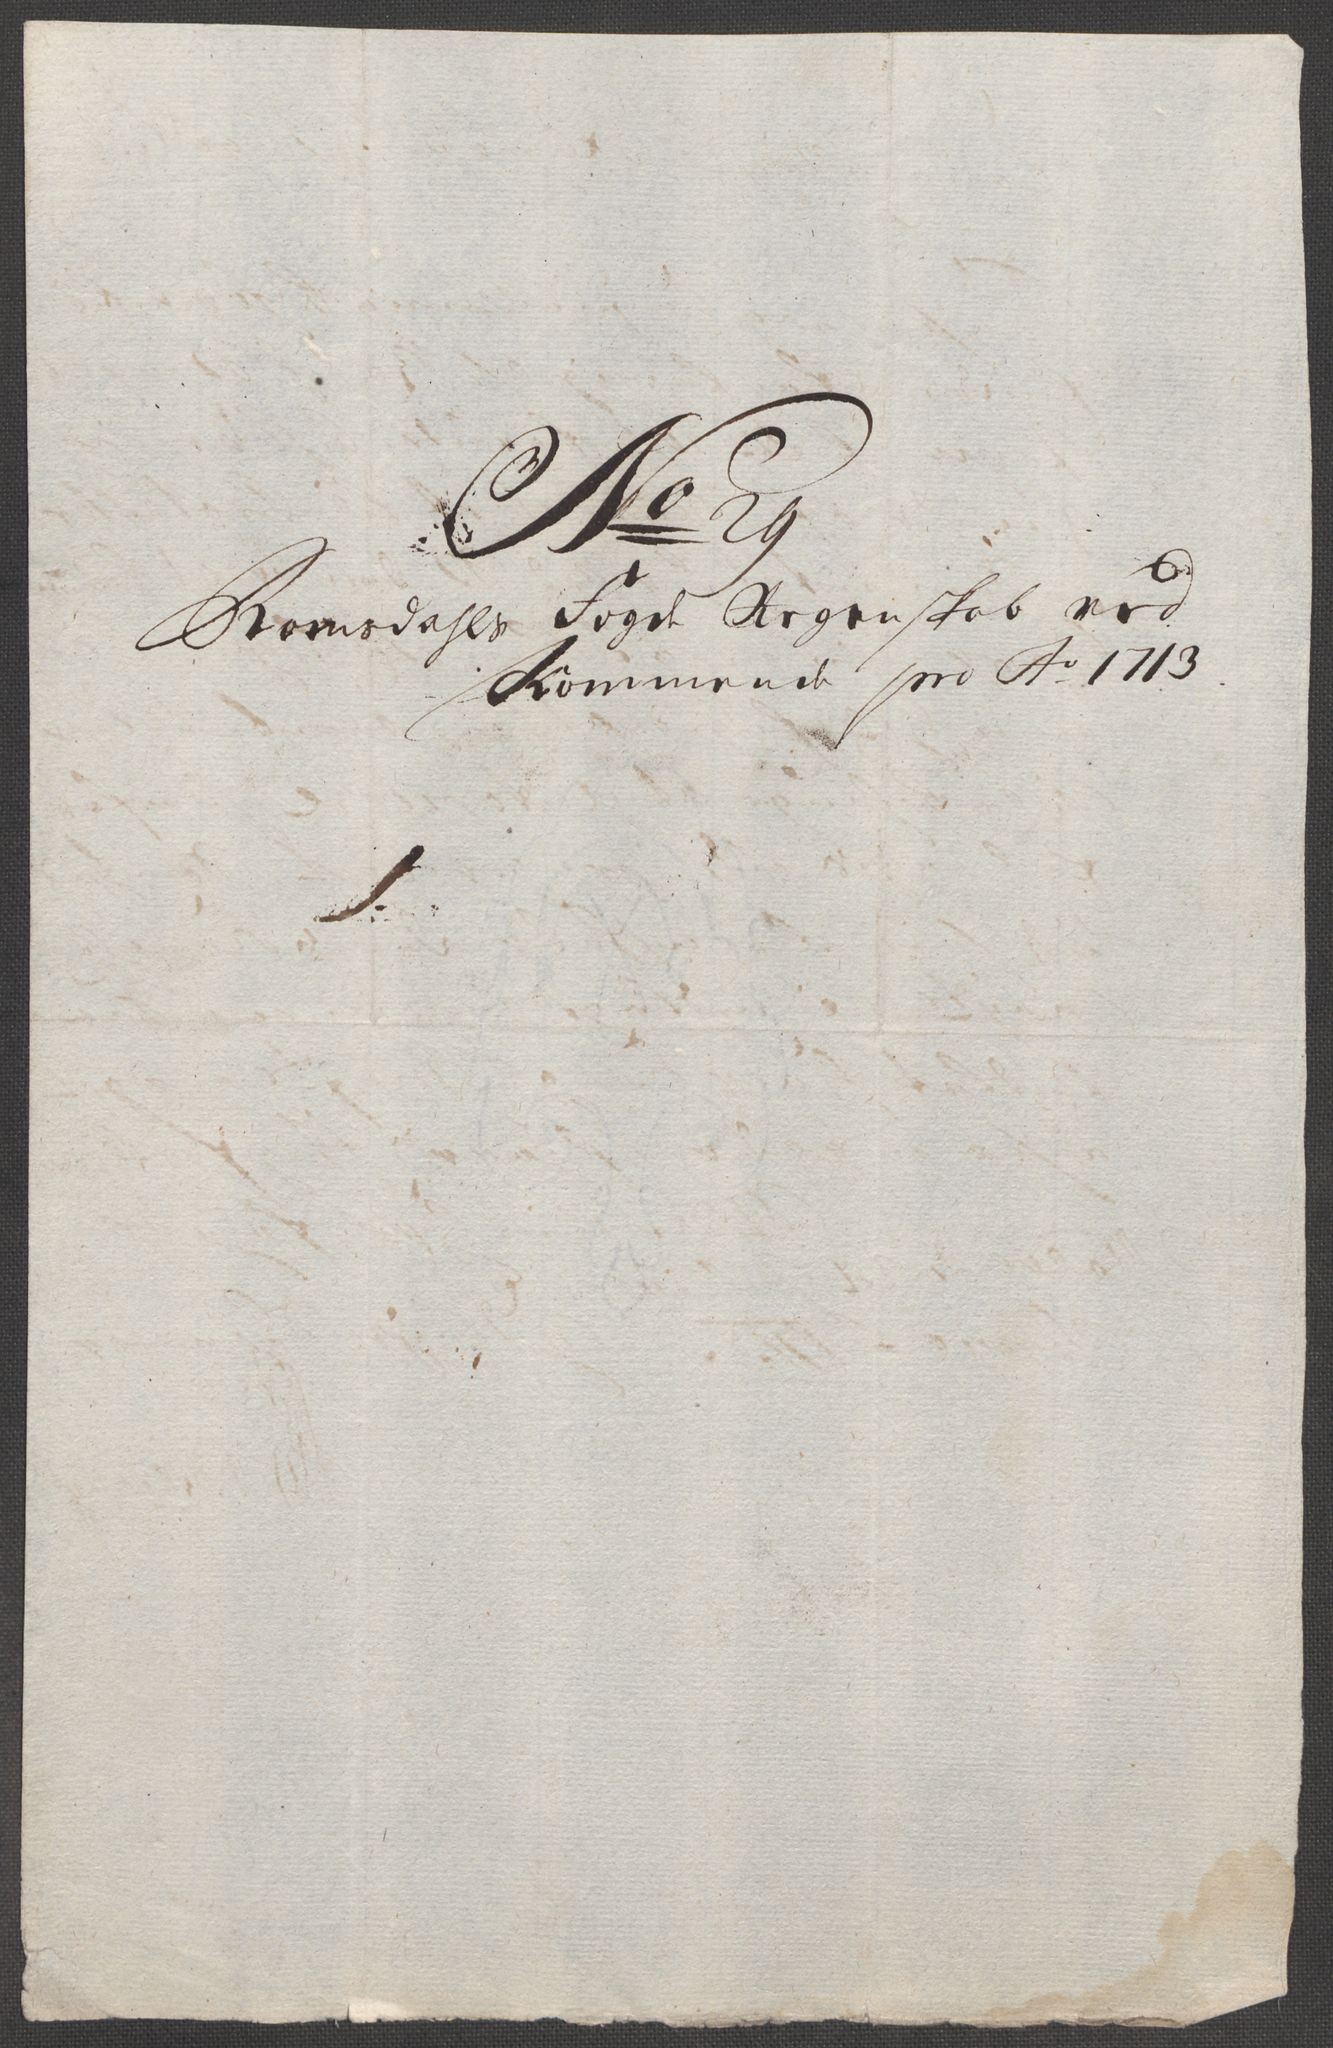 No 29
Romsdahls Fogde Regenskab ved
Kommende pro Ao 1713